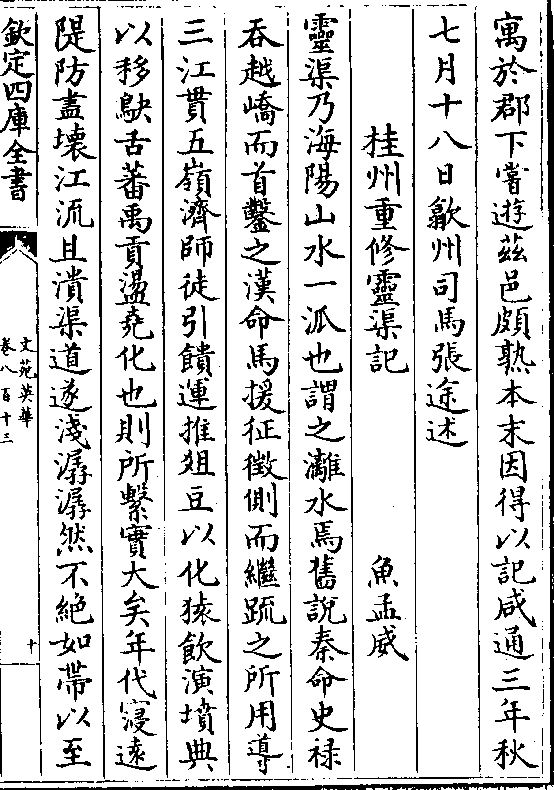 寓於郡下嘗遊茲邑頗熟本末因得以記咸通三年秋
七月十八日歙州司馬張途述
桂州重修靈渠記
魚孟威
靈渠乃海陽山水一派也謂之灕水焉舊説秦命史禄
吞越嶠而首鑿之漢命馬援征徵側而繼疏之所用導
三江貫五嶺濟師徒引饋運推俎豆以化猿飲演墳典
以移鴃舌蕃禹貢盪堯化也則所繫實大矣年代寖遠
隄防盡壞江流且潰渠道遂淺潺潺然不絶如帶以至
欽定四庫全書
文苑英華
卷八百十三
十